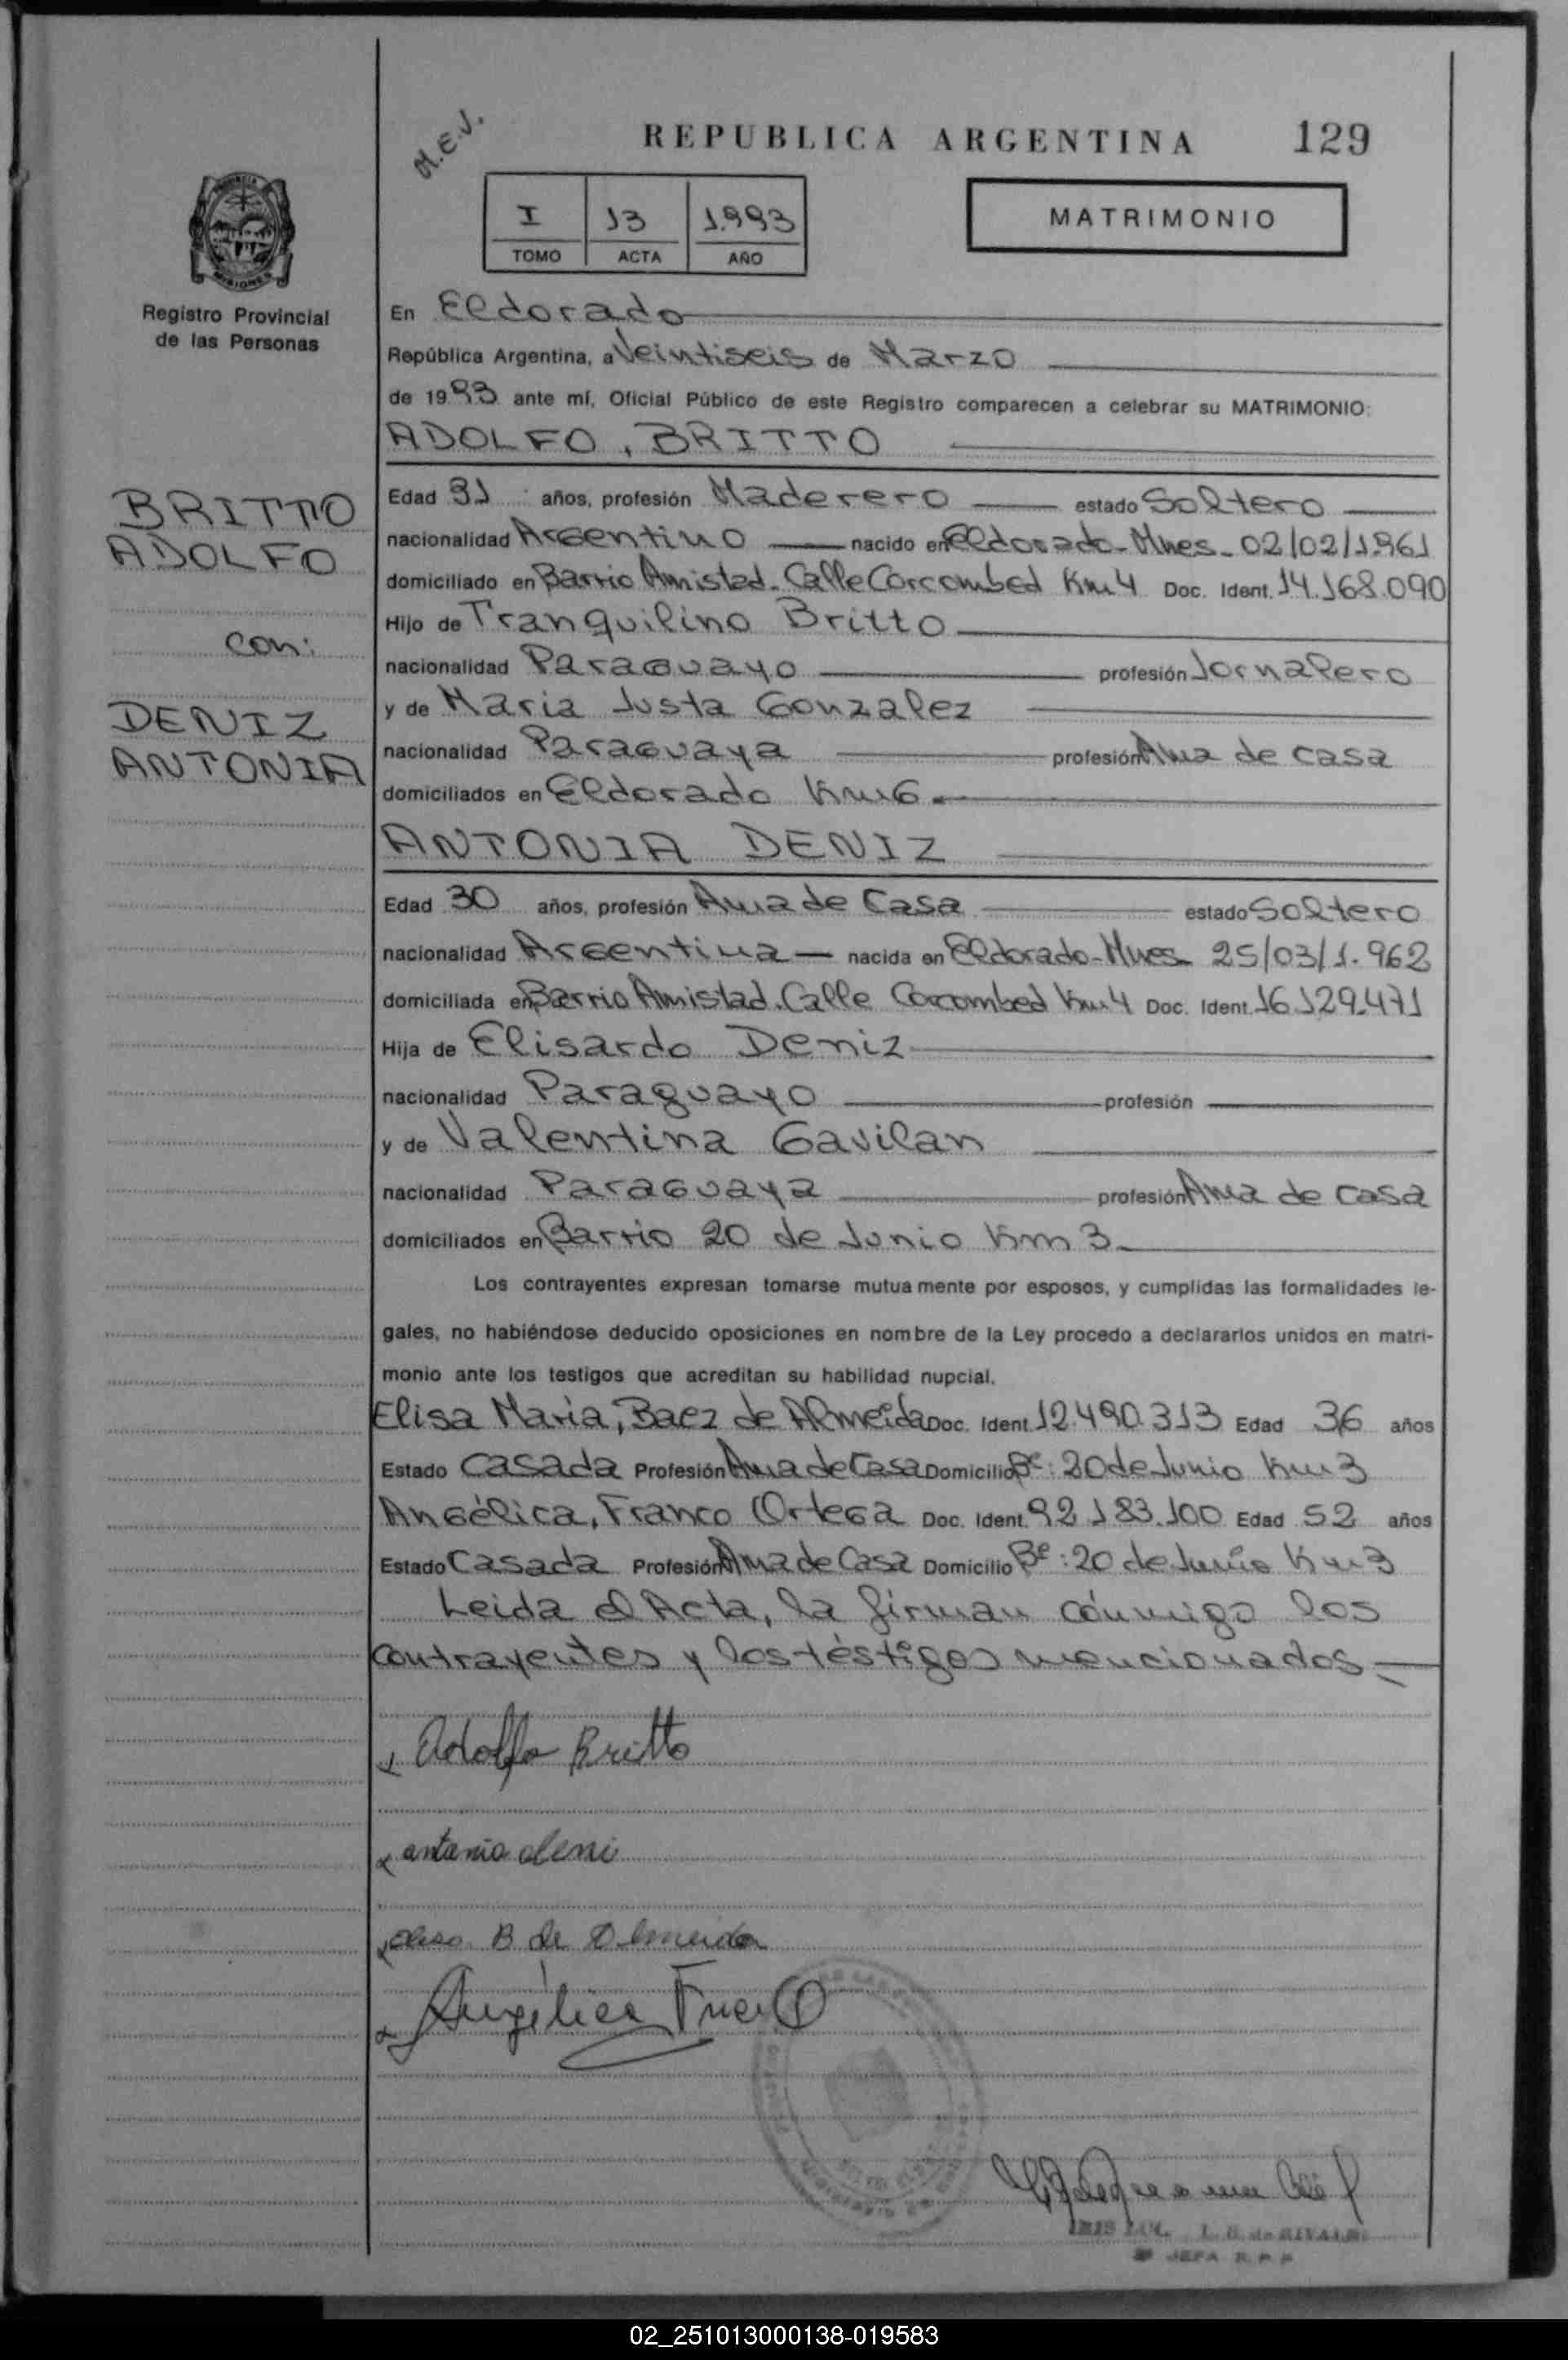 M.E.J.
REPUBLICA ARGENTINA 129
I 13 1.993
TOMO ACTA AÑO
MATRIMONIO
PROVINCIA
MISIONES
Registro Provincial
de las Personas
En Eldorado
República Argentina, a Veintiseis de Marzo
de 1993 ante mí, Oficial Público de este Registro comparecen a celebrar su MATRIMONIO:
ADOLFO, BRITTO
BRITTO
ADOLFO
con:
DENIZ
ANTONIA
Edad 31 años, profesión Maderero estado Soltero
nacionalidad Argentino nacido en Eldorado-Mnes- 02/02/1.961
domiciliado en Barrio Amistad-Calle Corcombed Km 4 Doc. Ident. 14.168.090
Hijo de Tranquilino Britto
nacionalidad Paraguayo profesión Jornalero
y de Maria Justa Gonzalez
nacionalidad Paraguaya profesión Ama de casa
domiciliados en Eldorado Km 6.
ANTONIA DENIZ
Edad 30 años, profesión Ama de Casa estado Soltero
nacionalidad Argentina nacida en Eldorado-Mnes- 25/03/1.962
domiciliada en Barrio Amistad-Calle Corcombed Km 4 Doc. Ident. 16.129.471
Hija de Elisardo Deniz
nacionalidad Paraguayo profesión
y de Valentina Gavilan
nacionalidad Paraguaya profesión Ama de casa
domiciliados en Barrio 20 de Junio Km 3.
Los contrayentes expresan tomarse mutua mente por esposos, y cumplidas las formalidades le-
gales, no habiéndose deducido oposiciones en nombre de la Ley procedo a declararlos unidos en matri-
monio ante los testigos que acreditan su habilidad nupcial.
Elisa Maria, Baez de Almeida Doc. Ident. 12.490.313 Edad 36 años
Estado Casada Profesión Ama de Casa Domicilio Bº: 20 de Junio Km 3
Angélica, Franco Ortega Doc. Ident. 92.183.100 Edad 52 años
Estado Casada Profesión Ama de Casa Domicilio Bº: 20 de Junio Km 3
Leida el Acta, la firman conmigo los
contrayentes y los testigos mencionados.-
x Adolfo Britto
x antonia deni
x elisa B de Almeida
x Angélica Franco
L. B. de RIVALDI
JEFA R. P. P
02_251013000138-019583